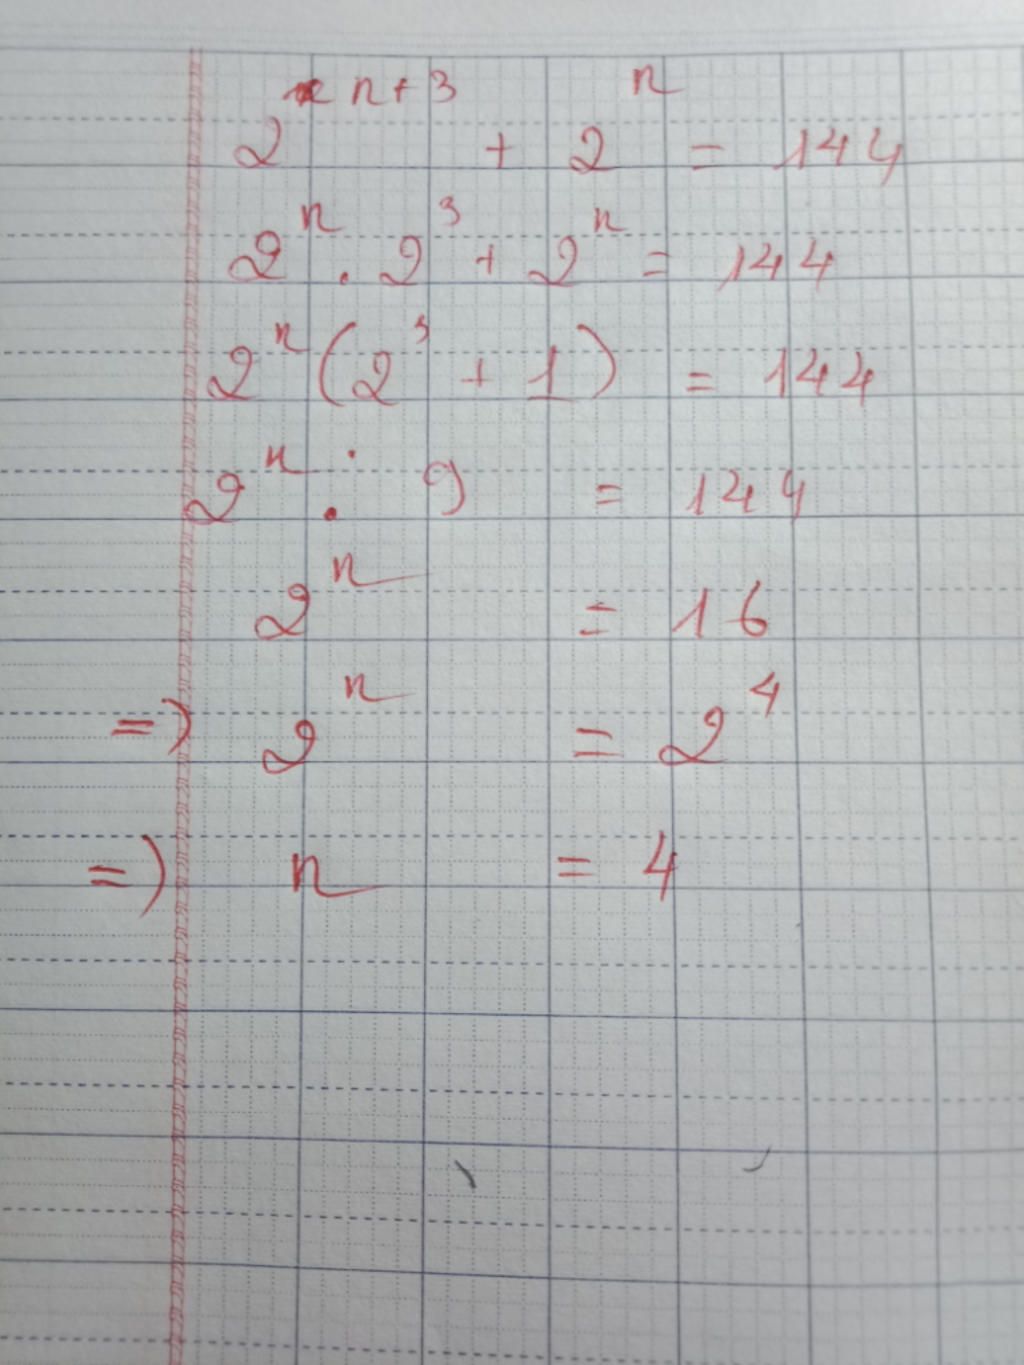 2ⁿ⁺³ + 2ⁿ = 144
2ⁿ . 2³ + 2ⁿ = 144
2ⁿ (2³ + 1) = 144
2ⁿ . 9 = 144
2ⁿ = 16
=) 2ⁿ = 2⁴
=) n = 4